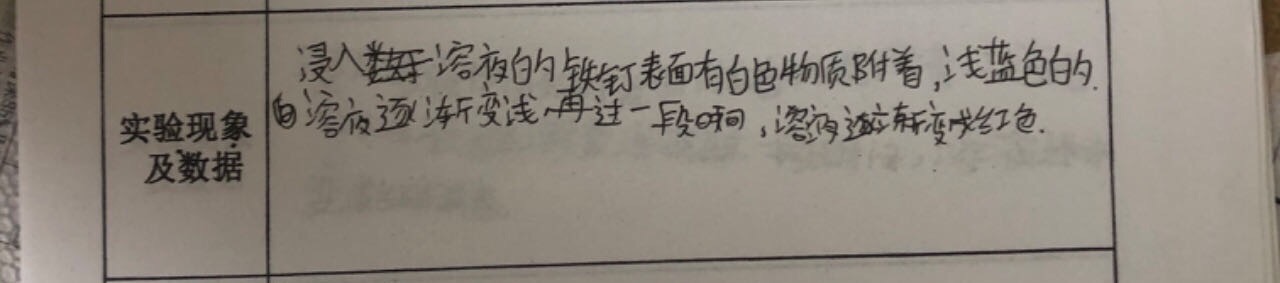 浸入溶液的铁钉表面有白色物质附着,浅蓝色的
溶液逐渐变浅.再过一段时间,溶液逐渐变成红色.
实验现象
及数据